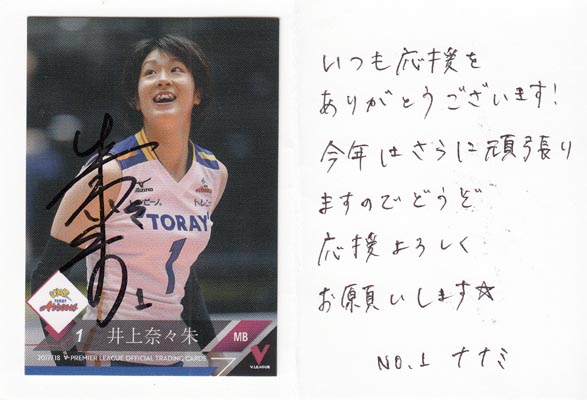 MIZUNO
トレビーノ。
トレシー
TORAY
1
TORAY
Arrows
1
1 井上奈々朱 MB
2017/18 V・PREMIER LEAGUE OFFICIAL TRADING CARDS
V.LEAGUE
いつも応援を
ありがとうございます!
今年はさらに頑張り
ますのでどうぞ
応援よろしく
お願いします☆
NO.1 ナナミ